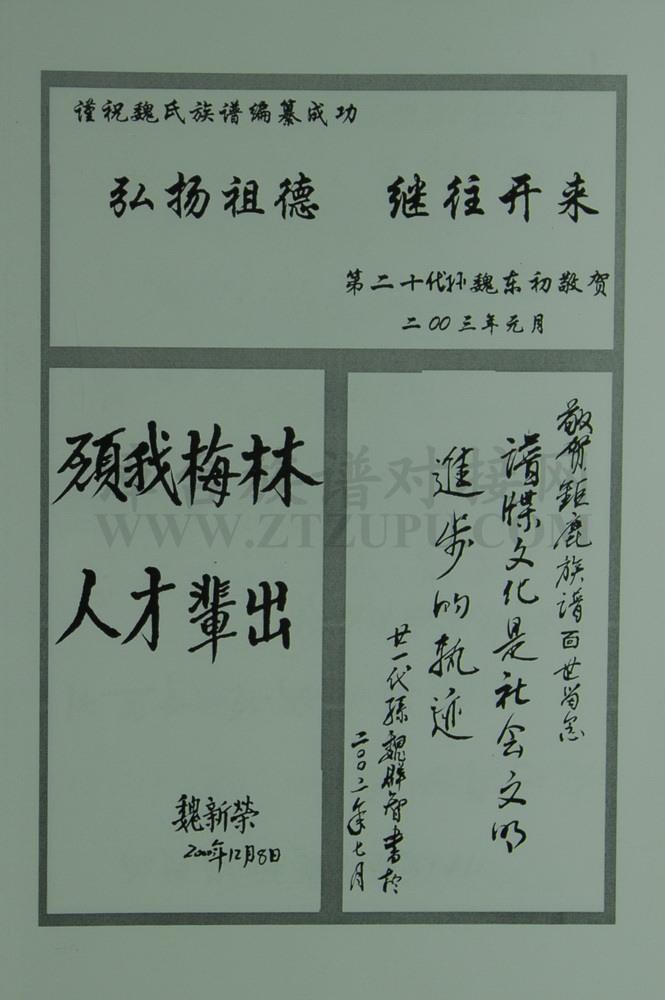 谨祝魏氏族谱编纂成功
弘扬祖德 继往开来
第二十代孙魏东初敬贺
二00三年元月
願我梅林
人才輩出
魏新荣
2000年12月8日
敬贺鉅鹿族谱百世尚念
谱牒文化是社会文明
進步的轨迹
廿一代孫魏群智書於
二00二年七月
WWW.ZTZUPU.COM